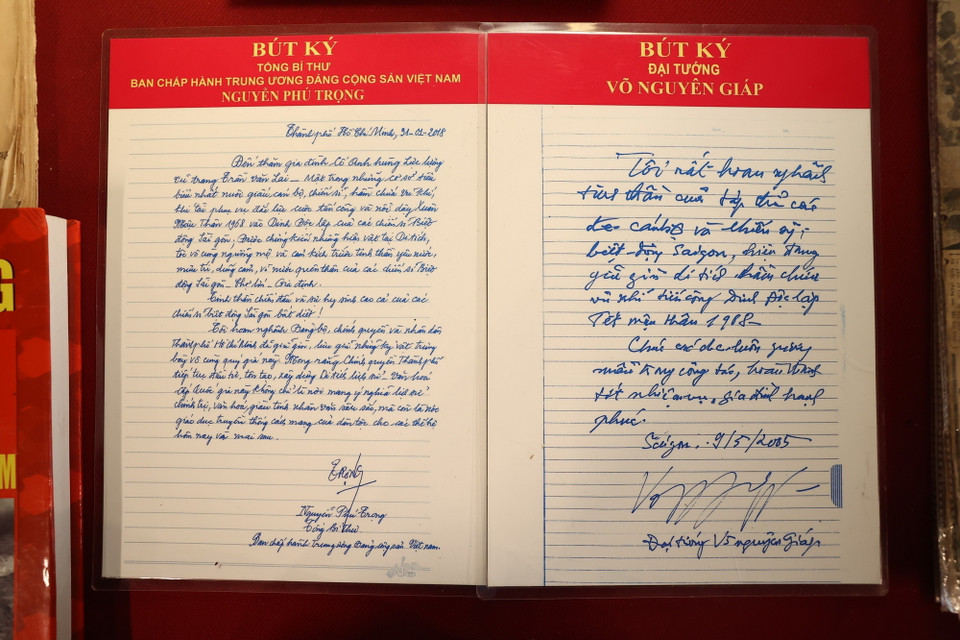 BÚT KÝ
TỔNG BÍ THƯ
BAN CHẤP HÀNH TRUNG ƯƠNG ĐẢNG CỘNG SẢN VIỆT NAM
NGUYỄN PHÚ TRỌNG
Thành phố Hồ Chí Minh, 31-01-2018
Đến thăm gia đình Cố Anh hùng Lực lượng
vũ trang Trần Văn Lai – Một trong những cơ sở tiêu
biểu nhất nuôi giấu cán bộ, chiến sĩ, hầm chứa vũ khí,
khí tài phục vụ đắc lực cuộc tấn công và nổi dậy Xuân
Mậu Thân 1968 vào Dinh Độc lập của các chiến sĩ Biệt
động Sài gòn; Được chứng kiến những hiện vật tại Di tích,
tôi vô cùng ngưỡng mộ và cảm kích trước tinh thần yêu nước,
mưu trí, dũng cảm, vì nước quên thân của các chiến sĩ Biệt
động Sài gòn – Chợ lớn – Gia định.
Tinh thần chiến đấu và sự hy sinh cao cả của các
chiến sĩ biệt động Sài gòn bất diệt!
Tôi hoan nghênh Đảng bộ, chính quyền và nhân dân
Thành phố Hồ Chí Minh đã giữ gìn, lưu giữ những kỷ vật trưng
bày vô cùng quý giá này. Mong rằng Chính quyền Thành phố
tiếp tục đầu tư, tôn tạo, xây dựng Di tích lịch sử – Văn hoá
cấp Quốc gia này không chỉ là nơi mang ý nghĩa lịch sử
chính trị, văn hoá, giàu tính nhân văn sâu sắc, mà còn là nơi
giáo dục truyền thống cách mạng của dân tộc cho các thế hệ
hôm nay và mai sau.
TRỌNG
Nguyễn Phú Trọng
Tổng Bí Thư
Ban chấp hành Trung ương Đảng cộng sản Việt Nam.
BÚT KÝ
ĐẠI TƯỚNG
VÕ NGUYÊN GIÁP
Tôi rất hoan nghênh
tinh thần của tập thể các
đ/c cán bộ và chiến sỹ
biệt động Saigon, hiện đang
giữ gìn di tích hầm chứa
vũ khí tiến công dinh Độc lập
Tết mậu thân 1968–
Chúc các đ/c luôn gương
mẫu trong công tác, hoàn thành
tốt nhiệm vụ, gia đình hạnh
phúc.
Saigon, 9/5/2005
Đại tướng Võ nguyên Giáp